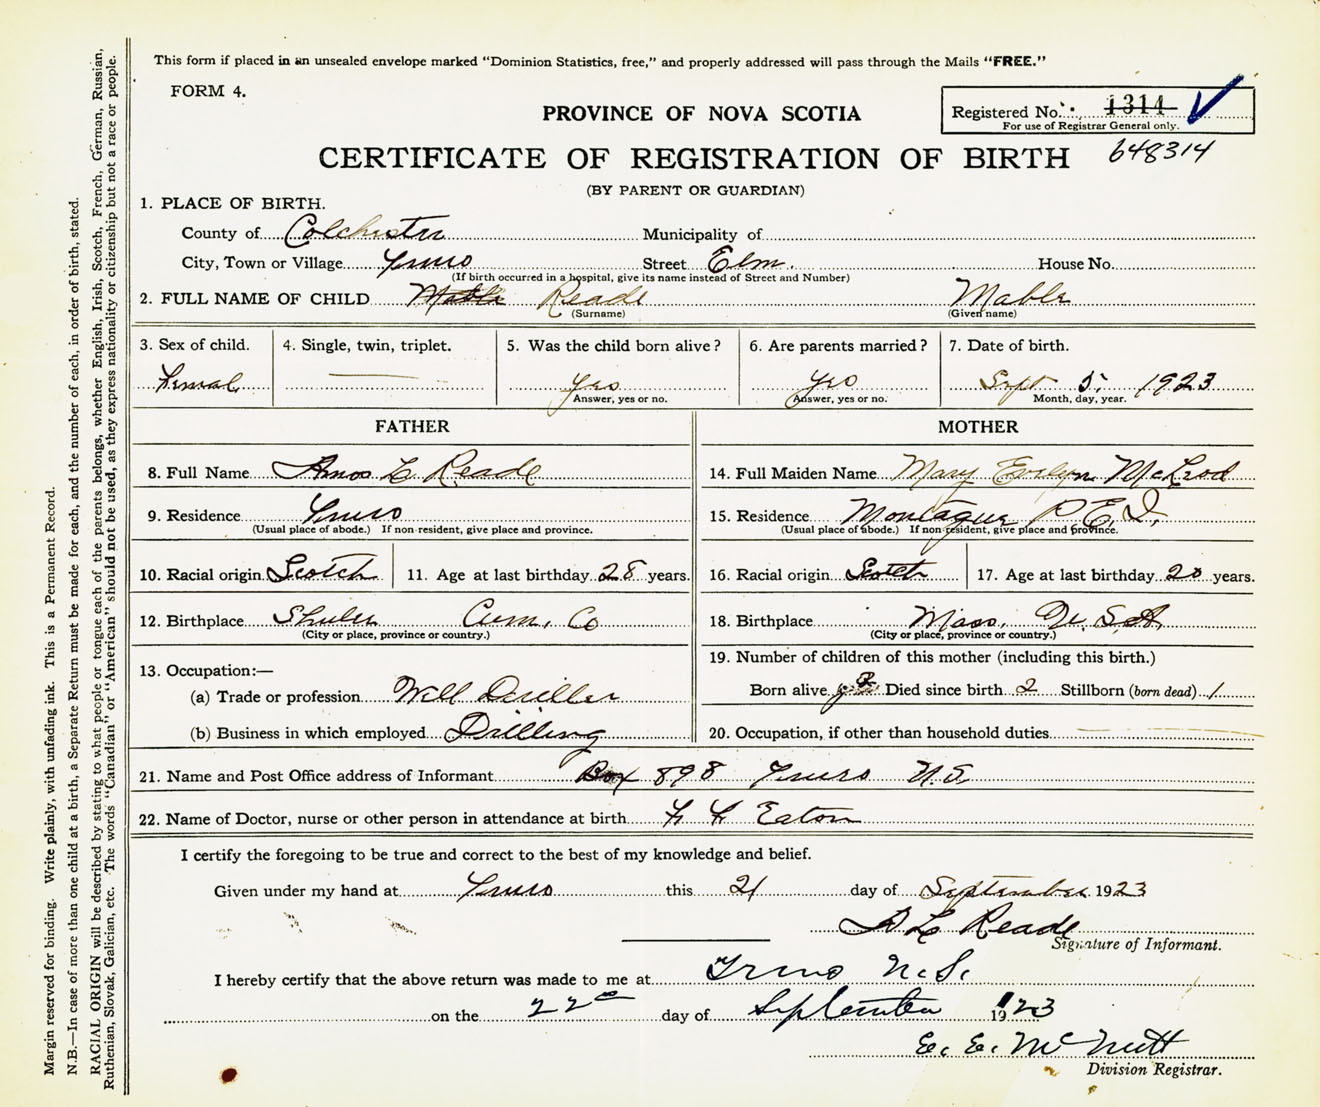 This form if placed in an unsealed envelope marked "Dominion Statistics, free," and properly addressed will pass through the Mails "FREE."
FORM 4.
PROVINCE OF NOVA SCOTIA
Registered No. 1314
For use of Registrar General only.
648314
CERTIFICATE OF REGISTRATION OF BIRTH
(BY PARENT OR GUARDIAN)
1. PLACE OF BIRTH.
County of Colchester Municipality of
City, Town or Village Truro Street Elm. House No.
(If birth occurred in a hospital, give its name instead of Street and Number)
2. FULL NAME OF CHILD Mable Reade Mable
(Surname) (Given name)
3. Sex of child. 4. Single, twin, triplet. 5. Was the child born alive? 6. Are parents married? 7. Date of birth.
Femal yes yes Sept 5, 1923
Answer, yes or no. Answer, yes or no. Month, day, year.
FATHER MOTHER
8. Full Name Amos L Reade 14. Full Maiden Name Mary Evelyn McLeod
9. Residence Truro 15. Residence Montague P.E.I.
(Usual place of abode.) If non-resident, give place and province. (Usual place of abode.) If non-resident, give place and province.
10. Racial origin Scotch 11. Age at last birthday 28 years. 16. Racial origin Scotch 17. Age at last birthday 20 years.
12. Birthplace Shulee Cum. Co 18. Birthplace Mass. U.S.A.
(City or place, province or country.) (City or place, province or country.)
13. Occupation:— 19. Number of children of this mother (including this birth.)
(a) Trade or profession Well Driller Born alive 2 Died since birth 2 Stillborn (born dead) 1
(b) Business in which employed Drilling 20. Occupation, if other than household duties
21. Name and Post Office address of Informant Box 898 Truro N.S.
22. Name of Doctor, nurse or other person in attendance at birth Eaton
I certify the foregoing to be true and correct to the best of my knowledge and belief.
Given under my hand at Truro this 21 day of September 1923
A L Reade
Signature of Informant.
I hereby certify that the above return was made to me at Truro N.S.
on the 22nd day of September 1923
E. E. McNutt
Division Registrar.
Margin reserved for binding. Write plainly, with unfading ink. This is a Permanent Record.
N.B.—In case of more than one child at a birth, a Separate Return must be made for each, and the number of each, in order of birth, stated.
RACIAL ORIGIN will be described by stating to what people or tongue each of the parents belongs, whether English, Irish, Scotch, French, German, Russian,
Ruthenian, Slovak, Galician, etc. The words "Canadian" or "American" should not be used, as they express nationality or citizenship but not a race or people.